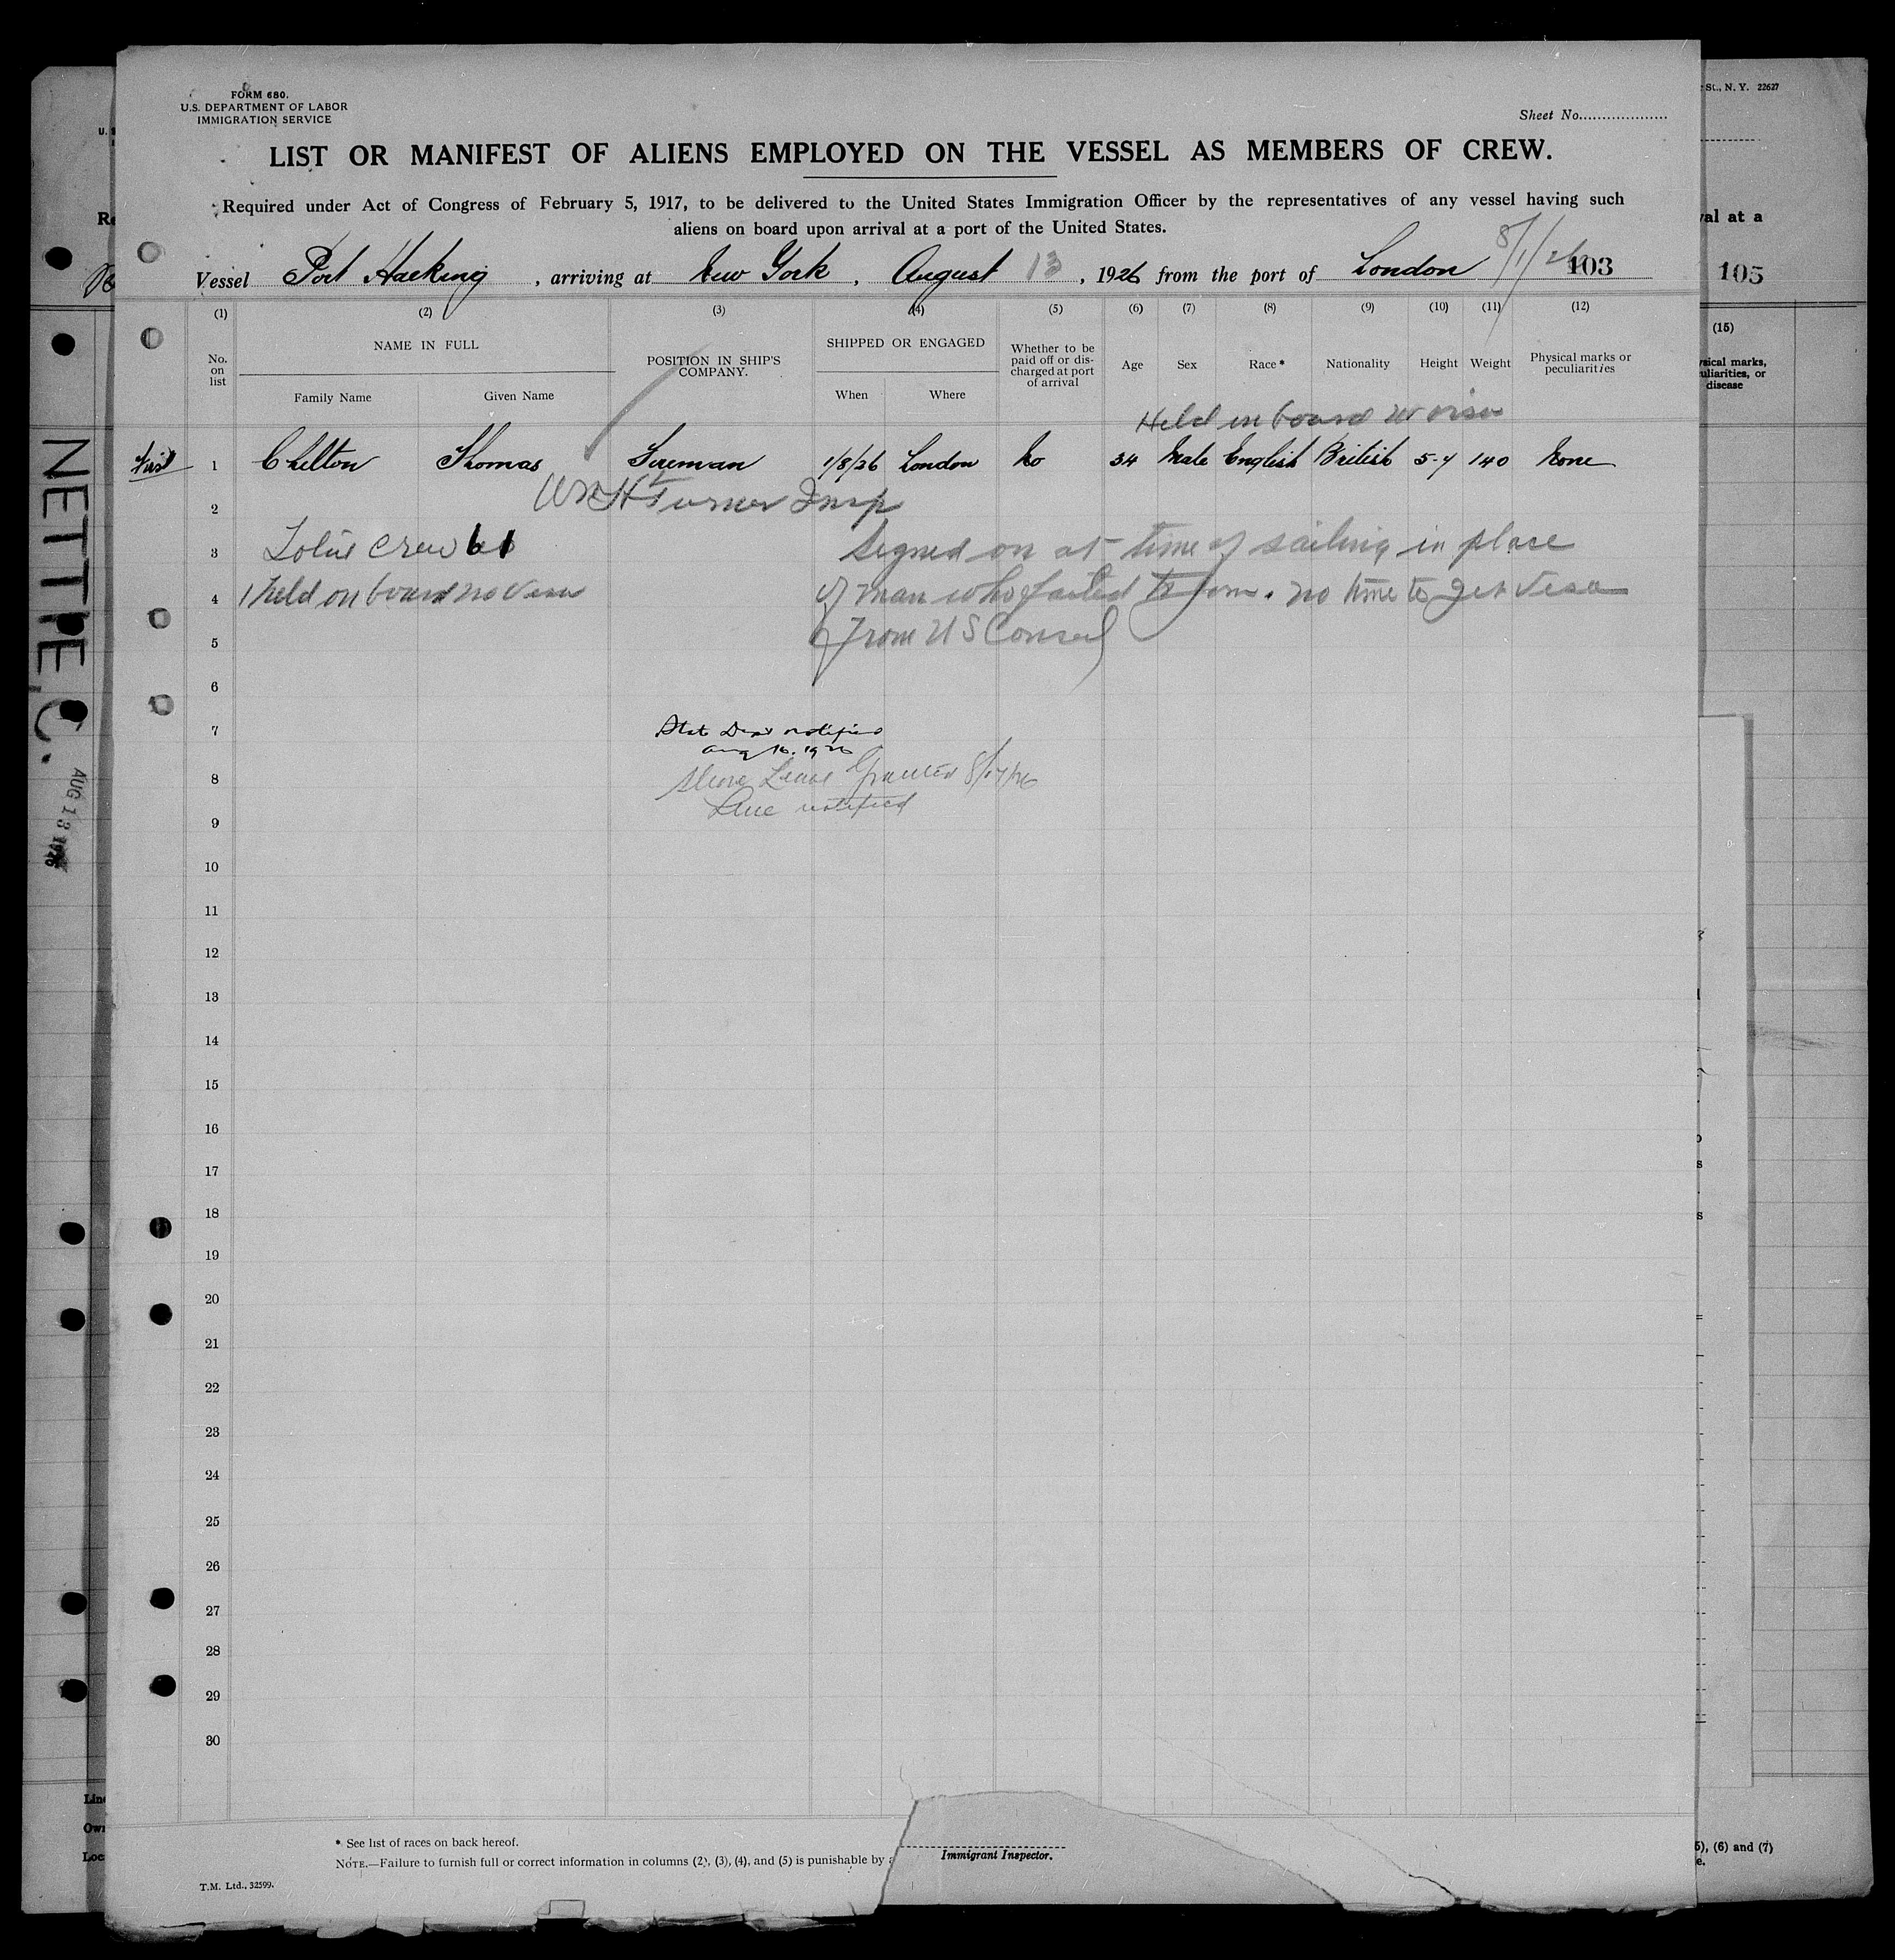 FORM 680.
U.S. DEPARTMENT OF LABOR
IMMIGRATION SERVICE
Sheet No...................
St., N. Y. 22627
LIST OR MANIFEST OF ALIENS EMPLOYED ON THE VESSEL AS MEMBERS OF CREW.
Required under Act of Congress of February 5, 1917, to be delivered to the United States Immigration Officer by the representatives of any vessel having such
aliens on board upon arrival at a port of the United States.
val at a
8/1/26
Vessel Port Hacking , arriving at New York , August 13 , 1926 from the port of London 103
105
(1) (2) (3) (4) (5) (6) (7) (8) (9) (10) (11) (12)
(15)
No. on list
NAME IN FULL
Family Name Given Name
POSITION IN SHIP'S COMPANY.
SHIPPED OR ENGAGED
When Where
Whether to be paid off or discharged at port of arrival
Age Sex Race * Nationality Height Weight
Physical marks or peculiarities
ysical marks,
uliarities, or
disease
Held on board no visa
First 1 Chilton Thomas Fireman 1/8/26 London No 34 Male English British 5-7 140 None
Wm H Turner Insp
2
3 Total crew 61 Signed on at time of sailing in place
4 1 held on board no visa of man who failed to join. no time to get visa
5 from U S Consul
6
7 State Dept notified
Aug 16. 1926
8 Shore Leave Granted 8/17/26
Line notified
9
10
11
12
13
14
15
16
17
18
19
20
21
22
23
24
25
26
27
28
29
30
NETTIE, C.
AUG 13 1926
* See list of races on back hereof.
NOTE.—Failure to furnish full or correct information in columns (2), (3), (4), and (5) is punishable by a
Immigrant Inspector.
T.M. Ltd., 32599.
5), (6) and (7)
e.
Line
Own
Loc